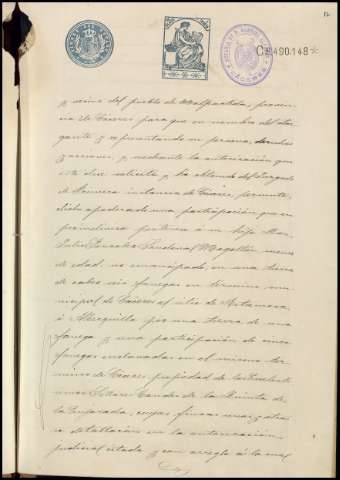 C8.490.148
y vecino del pueblo de Malpartida, provin-
cia de Cáceres para que en nombre del otor-
gante y representando su persona, derechos
y acciones, y mediante la autorización que
este dice solicita y ha obtenido del Juzgado
de primera instancia de Cáceres, permute,
dicho apoderado una participación que en
proindiviso pertenece á su hijo Don
Julio Gonzalez Sandoval Magallón, menor
de edad, no emancipado en una tierra
de cabir seis fanegas en término mu-
nicipal de Cáceres al sitio de Matamoros
ó Alberquilla por una tierra de una
fanega y una participación de cinco
fanegas enclavadas en el mismo tér-
mino de Cáceres propiedad de la Excelent-
ma Señora Condesa de la Quinta de
la Enjarada, cuyas fincas
detalladas en la autorización
judicial citada y con arreglo á la cual